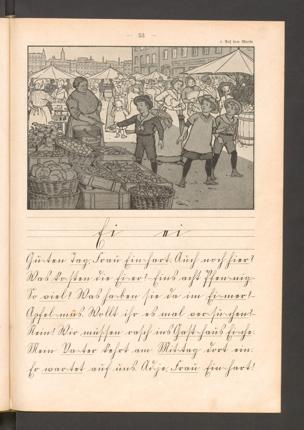 — 53 —
4. Auf dem Markte
Ei ei
Gu-ten Tag, Frau Ein-hart. Auch noch hier!
Was ko-sten die Ei-er? Eins acht Pfen-nig.
So viel! Was ha-ben sie da im Ei-mer?
Apfel-mus. Wollt ihr es mal ver-su-chen?
Nein! Wir müs-sen rasch ins Gast-haus Ei-che.
Mein Va-ter kehrt am Mit-tag dort ein.
Er war-tet auf uns. Ad-je, Frau Ein-hart!